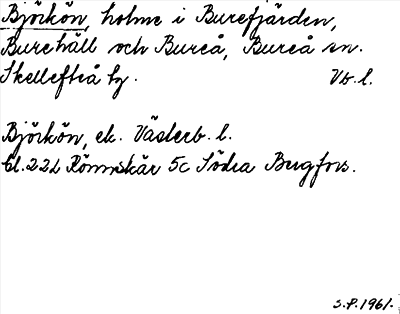 Björkön, holme i Burefjärden,
Burehäll och Bureå, Bureå sn.
Skellefteå tg. Vb. l.
Björkön, ek. Västerb. l.
bl. 22L Rönnskär 5c Södra Bergfors.
S.P. 1961.